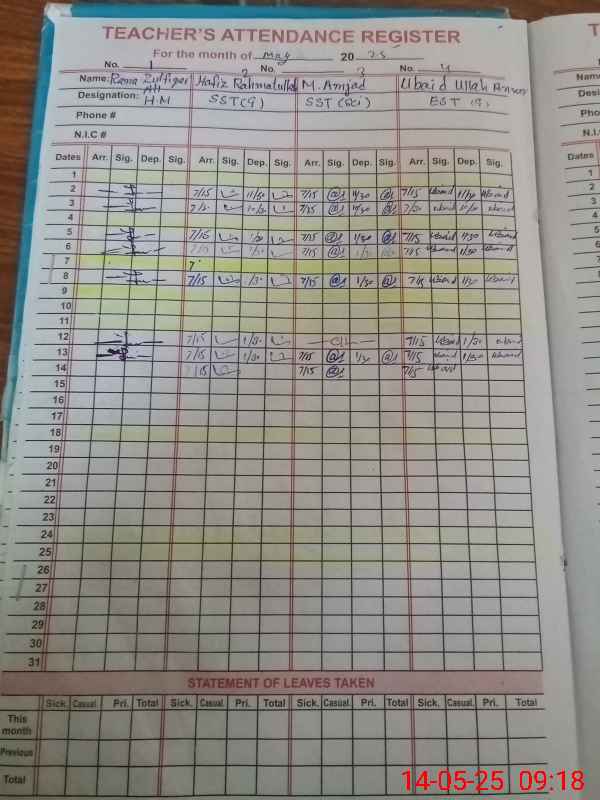 TEACHER'S ATTENDANCE REGISTER
For the month of May 2025
No. 1 No. 2 No. 3 No. 4
Name: Rana Zulfiqar Ali Hafiz Rahmatullah M. Amjad Ubaid Ullah Anwar
Designation: H.M SST(G) SST(Sci) EST (G)
Phone #
N.I.C #
Dates Arr. Sig. Dep. Sig. Arr. Sig. Dep. Sig. Arr. Sig. Dep. Sig. Arr. Sig. Dep. Sig.
1
2 7/15 11/30 7/15 11/30 7/15 11/30 Ubaid
3
4
5 7/15 1/30 7/15 1/30 7/15 Ubaid 1/30 Ubaid
6 7/15 1/30 7/15 1/30 7/15 Ubaid 1/30 Ubaid
7
8 7/15 1/30 7/15 1/30 7/15 Ubaid 1/30 Ubaid
9
10
11
12 7/15 1/30 C/L 7/15 Ubaid 1/30 Ubaid
13 7/15 1/30 7/15 1/30 7/15 Ubaid 1/30 Ubaid
14 7/15 7/15 7/15 Ubaid
15
16
17
18
19
20
21
22
23
24
25
26
27
28
29
30
31
STATEMENT OF LEAVES TAKEN
Sick. Casual. Pri. Total Sick. Casual. Pri. Total Sick. Casual. Pri. Total Sick. Casual. Pri. Total
This month
Previous
Total
14-05-25 09:18
T
Fo
No.
Name
Desi
Pho
N.I.
Dates
1
2
3
4
5
6
7
8
9
10
11
12
13
14
15
16
17
18
19
20
21
22
23
24
25
26
27
28
29
30
31